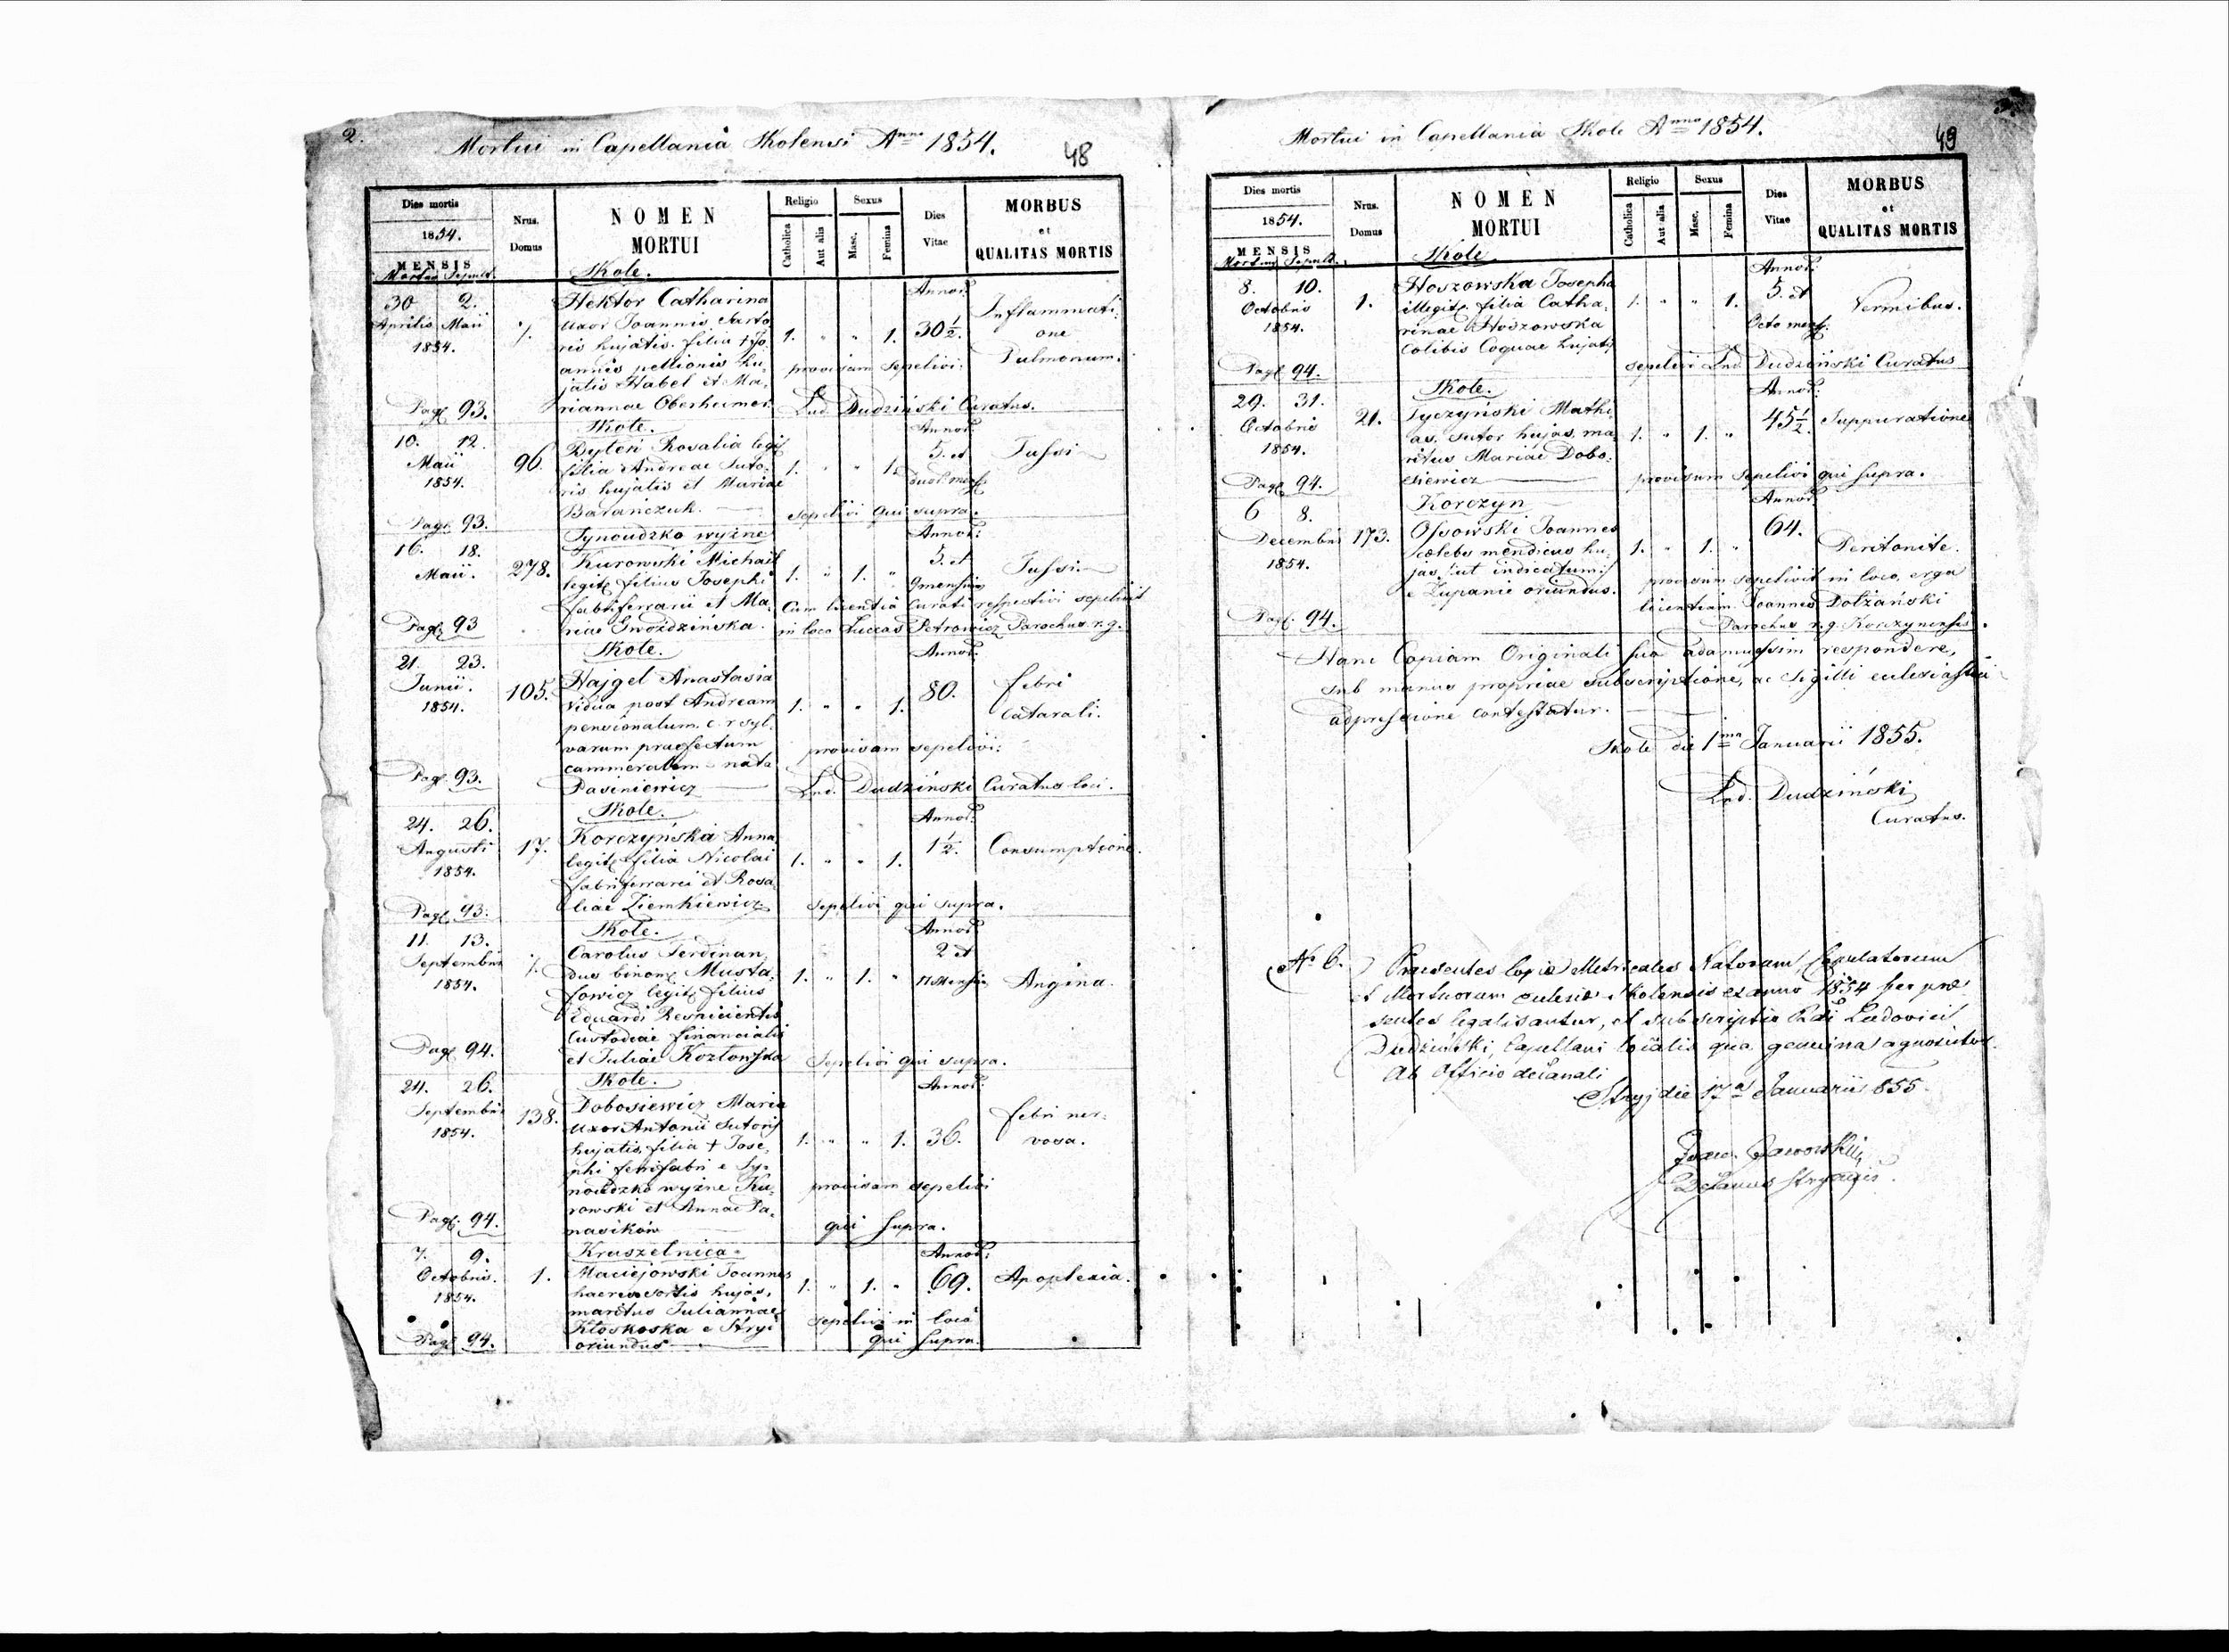 2.
Mortui in Capellaniâ Skolensi Anno 1854.
48
Dies mortis
1854.
MENSIS
Mortui Sepult.
Nrus. Domus
NOMEN MORTUI
Religio
Catholica
Aut alia
Sexus
Masc.
Femina
Dies Vitae
MORBUS et QUALITAS MORTIS
Skole.
30 2.
Aprilis Maii
1854.
Pag. 93.
Hektor Catharina
uxor Joannis Sarto
ris hujatis filia † Jo
annis pellionis hu,
jatis Habel et Ma,
riannae Oberheimer.
1. " " 1.
Annor.
30½.
Inflammati
one
Pulmonum.
provisam sepelivi:
Lud Dudziński Curatus.
Skole.
10. 12.
Maii
1854.
Pag. 93.
96.
Byteń Rosalia legit
filia Andreae Suto
ris hujatis et Mariae
Barańczuk.
1. " " 1.
Annor.
5. et
duor. mens.
Tussi
sepelivi qui supra.
Synoudzko wyżne
16. 18.
Maii.
Pag. 93
278.
Kurowski Michael
legit. filius Josephi
fabriferrarii et Ma,
riae Gwoździńska.
1. " 1. "
Annor:
5. et
9 mensium
Tussi
Cum licentiâ Curati respectivi sepelivit
in loco Luccas Petrowicz Parochus r. g.
Skole.
21. 23.
Junii.
1854.
Pag. 93.
105.
Hajgel Anastasia
vidua post Andream
pensionatum c. r syl.
varum praefectum
cammeralem nata
Pasiniewicz
1. " " 1.
Annor.
80.
febri
Catarali.
provisam sepelivi:
Lud. Dudziński Curatus loci.
Skole.
24. 26.
Augusti
1854.
Pag. 93.
17.
Korczyńska Anna
legit. filia Nicolai
fabriferrarii et Rosa
liae Ziemkiewicz
1. " " 1.
Annor.
1½.
Consumptione.
sepelivi qui supra.
Skole.
11. 13.
Septembris
1854.
Pag. 94.
Carolus Ferdinan,
dus binom. Musta,
fowicz legit. filius
Eduardi Respicientis
Custodiae financialis
et Juliae Kozłowska
1. " 1. "
Annor.
2 et
11 Mensium
Angina.
Sepelivi qui supra.
Skole.
24. 26.
Septembris
1854.
Pag. 94.
138.
Dobosiewicz Maria
uxor Antonii Sutoris
hujatis, filia † Jose,
phi ferrifabri e Sy,
noudzko wyżne Ku,
rowski et Annae Pa,
nasików
1. " " 1.
Annor.
36.
febri ner,
vosa.
provisam sepelivi
qui supra.
Kruszelnica
7. 9.
Octobris.
1854.
Pag. 94.
1.
Maciejowski Joannes
haeres sortis hujas,
maritus Juliannae
Kłoskoska e Stryi
oriundus
1. " 1. "
Annor:
69.
Apoplexia.
sepelivi in loco
qui supra.
Mortui in Capellania Skole Anno 1854.
49
Dies mortis
1854.
MENSIS
Mortui Sepult.
Nrus. Domus
NOMEN MORTUI
Religio
Catholica
Aut alia
Sexus
Masc.
Femina
Dies Vitae
MORBUS et QUALITAS MORTIS
Skole
8. 10.
Octobris
1854.
Pag. 94.
1.
Hoszowska Josepha
illegit. filia Catha,
rinae Hoszowska
Colibis Coquae hujatis
1. " " 1.
Annor.
5. et
Octo mens.
Vermibus.
sepelivi Lud. Dudziński Curatus
Skole.
29. 31.
Octobris
1854.
Pag. 94.
21.
Tyczyński Mathi,
as, sutor hujas, ma
ritus Mariae Dobo,
siewicz
1. " 1. "
Annor.
45½.
Suppuratione
provisum sepelivi qui supra.
Korczyn
6 8.
Decembris
1854.
Pag. 94.
173.
Ossowski Joannes
Coelebs mendicus hu,
jas, ut indicatum
e Zupanie oriundus.
1. " 1. "
Annor.
64.
Peritonite.
provisum sepelivit in loco, erga
licentiam Joannes Dołżański
Parochus r. g. Korczynensis.
Hanc Copiam Originali suo adamussim respondere,
sub manus propriae subscriptione, ac sigilli ecclesiastici
adpressione contestatur.
Skole die 1ma Januarii 1855.
Lud. Dudziński
Curatus.
No 6.
Praesentes Copiae Metricales Natorum, Copulatorum
et Mortuorum ecclesiae Skolensis ex anno 1854 per prae
sentes legalisantur, et subscriptio Rdi Ludovici
Dudziński, Capellani localis qua genuina agnoscitur.
Ab officio decanali
Stryj die 17a Januarii 855.
Jaworski
Decanus Stryensis.